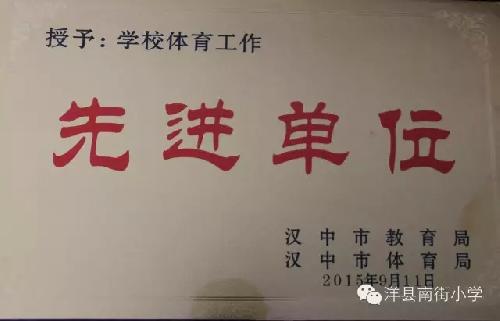 授予：学校体育工作
先进单位
汉中市教育局
汉中市体育局
2015年9月11日
洋县南街小学